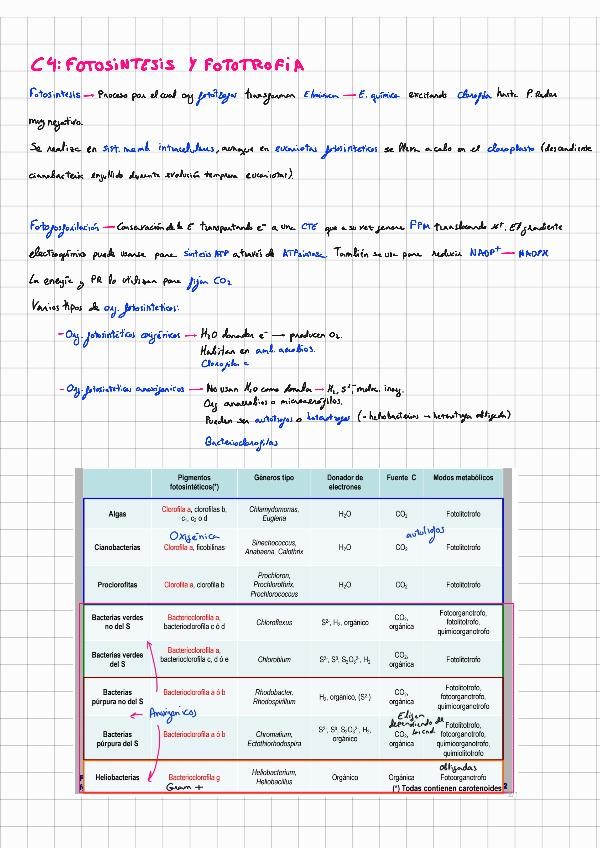 C4: FOTOSÍNTESIS Y FOTOTROFIA
Fotosíntesis → Proceso por el cual org fotótrofos transforman E lumínica → E. química excitando clorofila hasta P. Redox
muy negativo.
Se realiza en sist. memb. intracelulares, aunque en eucariotas fotosintéticos se lleva a cabo en el cloroplasto (descendiente
cianobacteria engullida durante evolución temprana eucariotas).
Fotofosforilación → Conservación de la E transportando e⁻ a una CTE que a su vez genera FPM translocando H⁺. El gradiente
electroquímico puede usarse para síntesis ATP a través de ATPsintasa. También se usa para reducir NADP⁺ → NADPH
La energía y PR lo utilizan para fijar CO₂
Varios tipos de org. fotosintéticos:
- Org. fotosintéticos oxigénicos → H₂O donador e⁻ → producen O₂.
Habitan en amb. aerobios.
Clorofila a
- Org. fotosintéticos anoxigénicos → No usan H₂O como donador → H₂, S²⁻, moléc. inorg.
Org anaerobios o microaerófilos.
Pueden ser autótrofos o heterótrofos (- heliobacterias → heterótrofa obligada)
Bacterioclorofilas
Pigmentos fotosintéticos(*) Géneros tipo Donador de electrones Fuente C Modos metabólicos
Algas Clorofila a, clorofilas b, c₁, c₂ o d Chlamydomonas, Euglena H₂O CO₂ Fotolitotrofo
Oxigénica autótrofos
Cianobacterias Clorofila a, ficobilinas Sinechococcus, Anabaena, Calothrix H₂O CO₂ Fotolitotrofo
Proclorofitas Clorofila a, clorofila b Prochloron, Prochlorothrix, Prochlorococcus H₂O CO₂ Fotolitotrofo
Bacterias verdes no del S Bacterioclorofila a, bacterioclorofila c ó d Chloroflexus S²⁻, H₂, orgánico CO₂, orgánica Fotoorganotrofo, fotolitotrofo, quimiorganotrofo
Bacterias verdes del S Bacterioclorofila a, bacterioclorofila c, d ó e Chlorobium S²⁻, S⁰, S₂O₃²⁻, H₂ CO₂, orgánica Fotolitotrofo
Bacterias púrpura no del S Bacterioclorofila a ó b Rhodubacter, Rhodospirillum H₂, orgánico, (S²⁻) CO₂, orgánica Fotolitotrofo, fotoorganotrofo, quimiorganotrofo
Anoxigénicos Eligen dependiendo de
Bacterias púrpura del S Bacterioclorofila a ó b Chromatium, Ectothiorhodospira S²⁻, S⁰, S₂O₃²⁻, H₂, orgánico CO₂, orgánica Fotolitotrofo, fotoorganotrofo, quimiorganotrofo, quimiolitotrofo
obligadas
Heliobacterias Bacterioclorofila g Heliobacterium, Heliobacillus Orgánico Orgánica Fotoorganotrofo
Gram +
(*) Todas contienen carotenoides 2